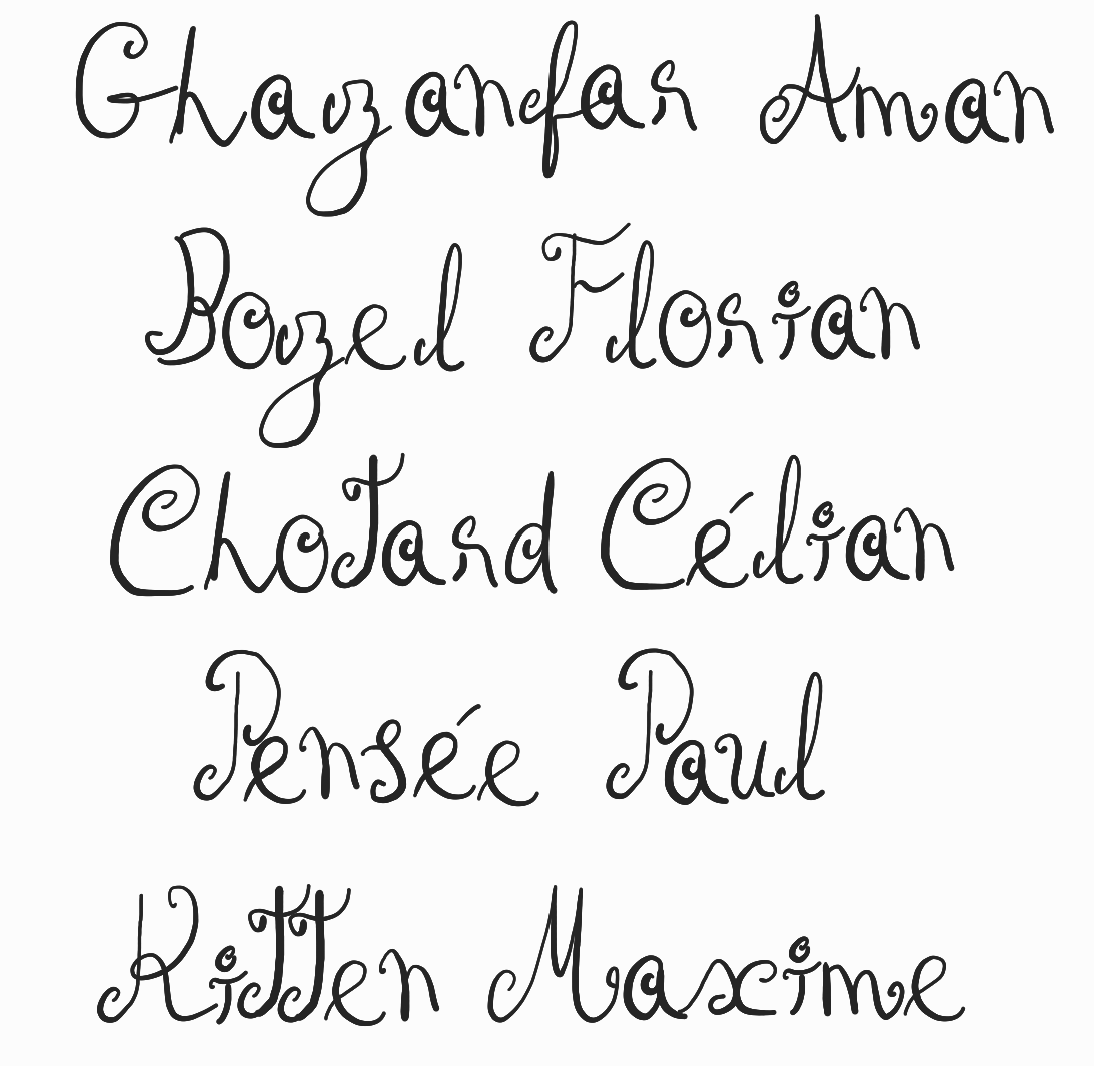 Ghazanfar Aman
Bozel Florian
Chotard Célian
Pensée Paul
Kitten Maxime